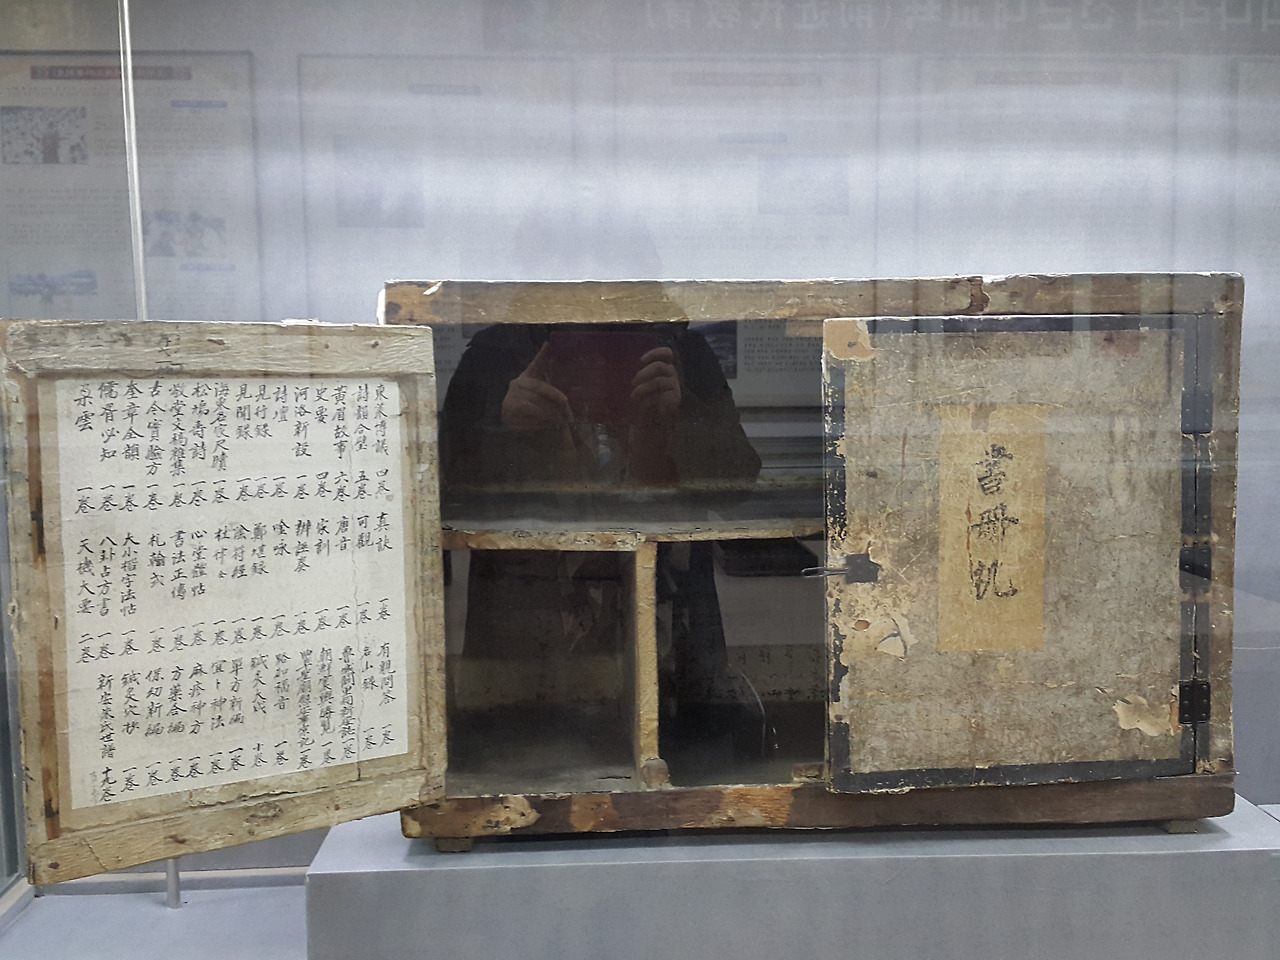 東萊博議 四卷 真談 一卷 有親問答 一卷
詩韻合璧 五卷 可觀 一卷 小錄 一卷
黃眉故事 六卷 唐音 一卷 一卷
史要 四卷 家訓 一卷 朝鮮寰輿勝覽 一卷
河洛新設 一卷 辨誣奏 一卷 一卷
詩壇 一卷 唫咏 一卷 路加福音 一卷
見付錄 一卷 鄭堪錄 一卷 鍼灸大成 十卷
見聞錄 一卷 陰符經 一卷 單方新編 一卷
海東名家尺牘 一卷 杜律 一卷 宜卜神法 一卷
松塢壽詩 一卷 心堂體帖 一卷 麻疹神方 一卷
敬堂文稿雜集 一卷 書法正傳 一卷 方藥合編 一卷
古今實驗方 一卷 札翰式 一卷 保幼新編 一卷
奎章全韻 一卷 大小楷字法帖 一卷 鍼灸抄 一卷
儒胥必知 一卷 八卦占方書 一卷 新安朱氏世譜 十九卷
朶雲 一卷 天機大要 二卷
書冊机